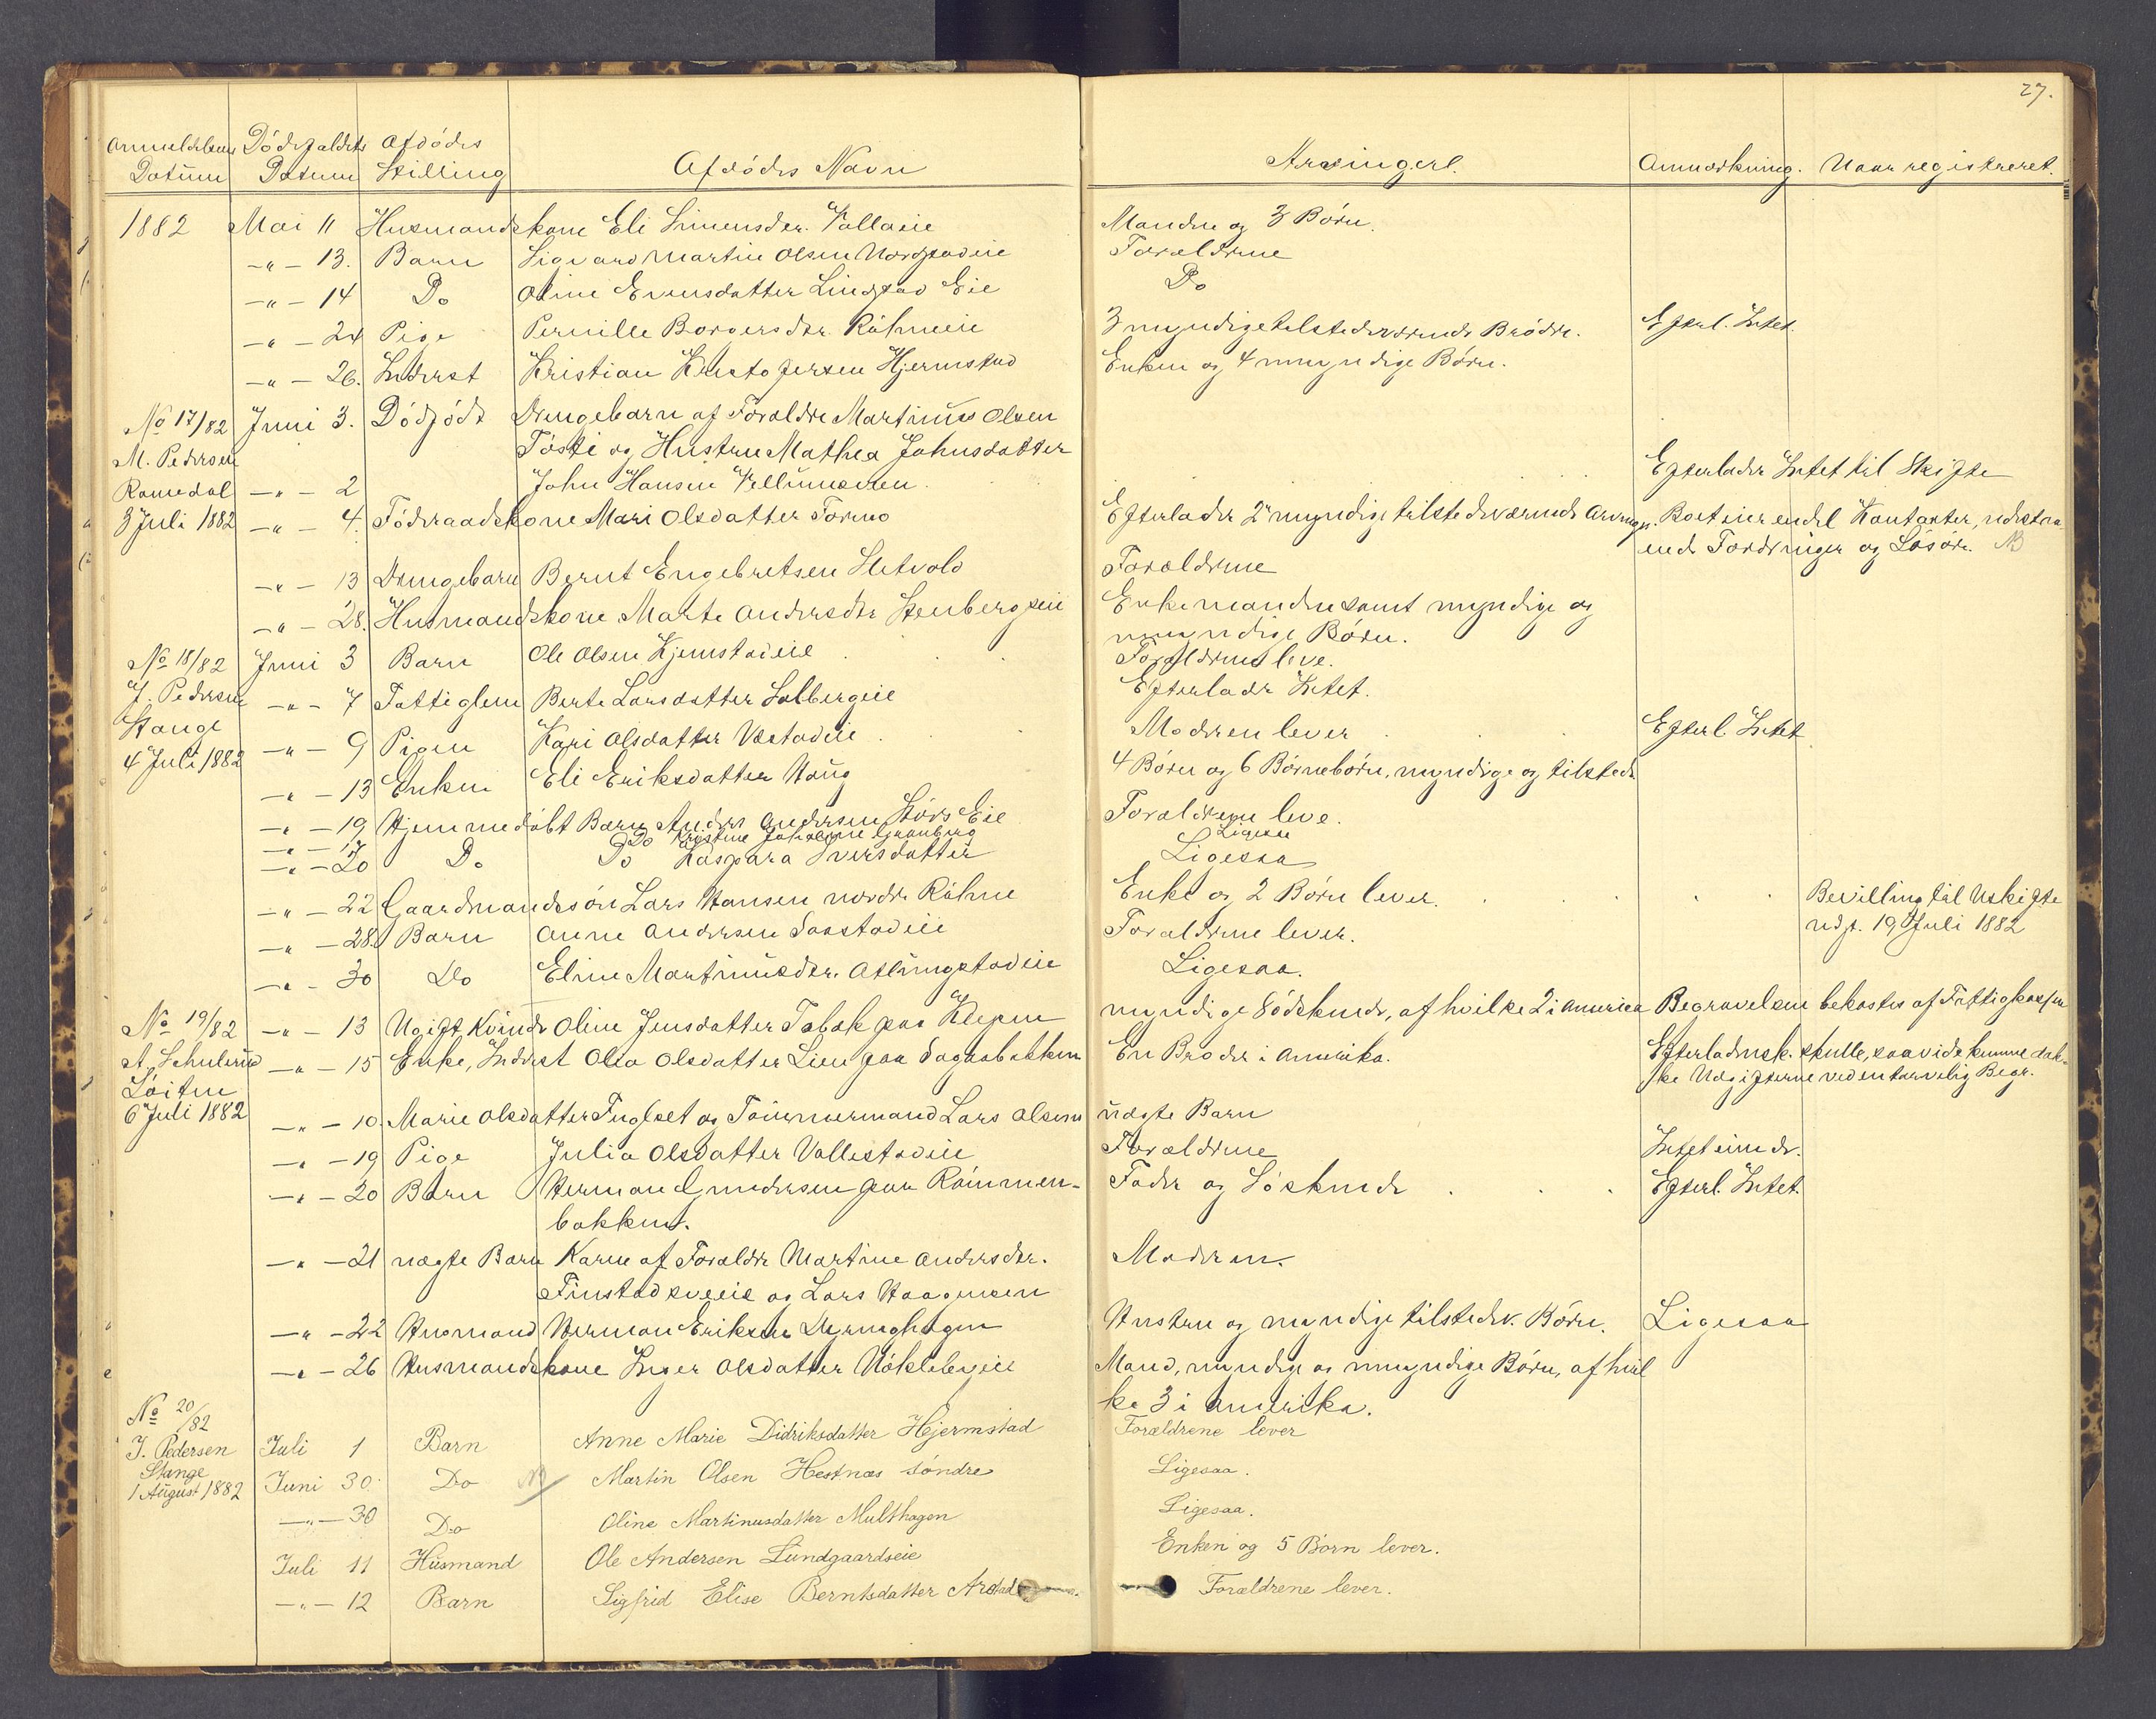 27.
Anmeldelsens Datum Dödsfaldets Datum Afdödes Stilling Afdödes Navn Arvinger. Anmærkning. Naar registreret.
1882 Mai 11 Husmandskone Eli Simensdtr. Vollaeie Manden og 3 Börn.
-"- 13. Barn Sigvard Martin Olsen Nordstadeie Forældrene
-"- 14 Do Oline Evensdatter Lindstad Eie Do
-"- 24 Pige Pernille Borgersdtr. Röhneeie 3 myndige tilstedeværende Brödre. Efterl. Intet.
-"- 26. Inderst Kristian Kristofersen Hjermstad Enken og 4 umyndige Börn.
No 17/82 Juni 3. Dödfödt Drengebarn af Forældre Martinus Olsen
M. Pedersen Tösti og Hustru Mathea Johnsdatter
Romedal -"- 2 John Hansen Efterlader Intet til Skifte
3 Juli 1882 -"- 4. Föderaadskone Mari Olsdatter Formo Efterlader 2 myndige tilstedeværende Arvinger. Boet eier endel Kontanter, udestaa
ende Fordringer og Lösöre. NB
-"- 13 Drengebarn Bernt Engebretsen Sletvold Forældrene
-"- 28. Husmandskone Marte Andersdtr Stenbergseie Enkemanden samt myndige og
umyndige Börn.
No 18/82 Juni 3 Barn Ole Olsen Hjemstadeie Forældrene leve.
J. Pedersen -"- 7 Fattiglem Berte Larsdatter Solbergeie Efterlader Intet.
Stange -"- 9 Pigen Kari Olsdatter Væstadeie Moderen lever Efterl. Intet
4 Juli 1882
-"- 13 Enken Eli Eriksdatter Haug 4 Börn og 6 Börnebörn, myndige og tilstede
-"- 19 Hjemmedöbt Barn Anders Andersen Hors Eie Forældrene leve.
-"- 17 Do Kristine Johanne Granberg Ligesaa
-"- 20 Do Do Kaspara Iversdatter Ligesaa
-"- 22 Gaardmandssön Lars Hansen nordre Röhne Enke og 2 Börn lever. Bevilling til Uskifte
udst. 19 Juli 1882
-"- 28. Barn Anne Andersen Saastadeie Forældrene lever.
-"- 30 Do Eline Martinusdtr. Atlungstadeie Ligesaa.
No 19/82 -"- 13 Ugift Kvinde Oline Jensdatter Tabak paa Klepen myndige Södskende, af hvilke 2 i America Begravelsen bekostes af Fattigkassen
A. Schulerud -"- 15 Enke, Inderst Olea Olsdatter Lien paa Sagaabakken En Broder i Amerika. Efterladensk. skulle, saavidt kunne dæk-
ke Udgifterne ved en tarvelig Begr.
Löiten
6 Juli 1882 -"- 10. Marie Olsdatter Fuglset og Tömmermand Lars Olsens uægte Barn
-"- 19 Pige Julia Olsdatter Vollestadeie Forældrene Intet eiende.
-"- 20 Barn Herman Gundersen paa Römmen- Fader og Söskende Efterl. Intet.
bakken.
-"- 21 uægte Barn Karen af Forældre Martine Andersdtr. Moderen.
Finstadsveeie og Lars Haagensen
-"- 22 Husmand Herman Eriksen Hustru og myndige tilstedev. Börn. Ligesaa
-"- 26 Husmandskone Inger Olsdatter Nöklebyeie Mand, myndige og umyndige Börn, af hvil
ke 3 i Amerika.
No 20/82
J. Pedersen Juli 1 Barn Anne Marie Didriksdatter Hjermstad Forældrene lever
Stange
1 August 1882 Juni 30 Do NB Martin Olsen Hestnæs söndre Ligesaa.
-"- 30 Do Oline Martinusdatter Multhagen Ligesaa.
Juli 11 Husmand Ole Andersen Lundgaardseie Enken og 5 Börn lever.
-"- 12 Barn Sigfrid Elise Berntsdatter Forældrene lever.